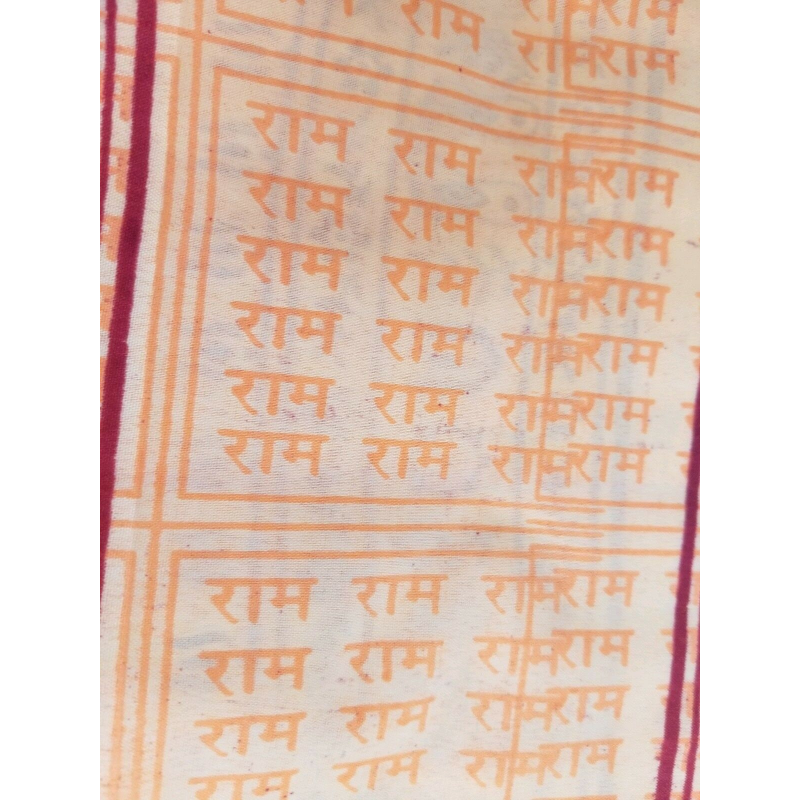 राम राम राम
राम राम
राम राम राम राम
राम राम राम राम
राम राम राम राम
राम राम राम राम
राम राम राम राम
राम राम राम राम
राम राम राम राम
राम राम राम राम
राम राम राम राम
राम राम राम राम